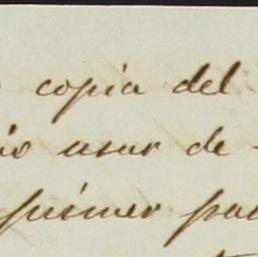 copia del
usar de
primer